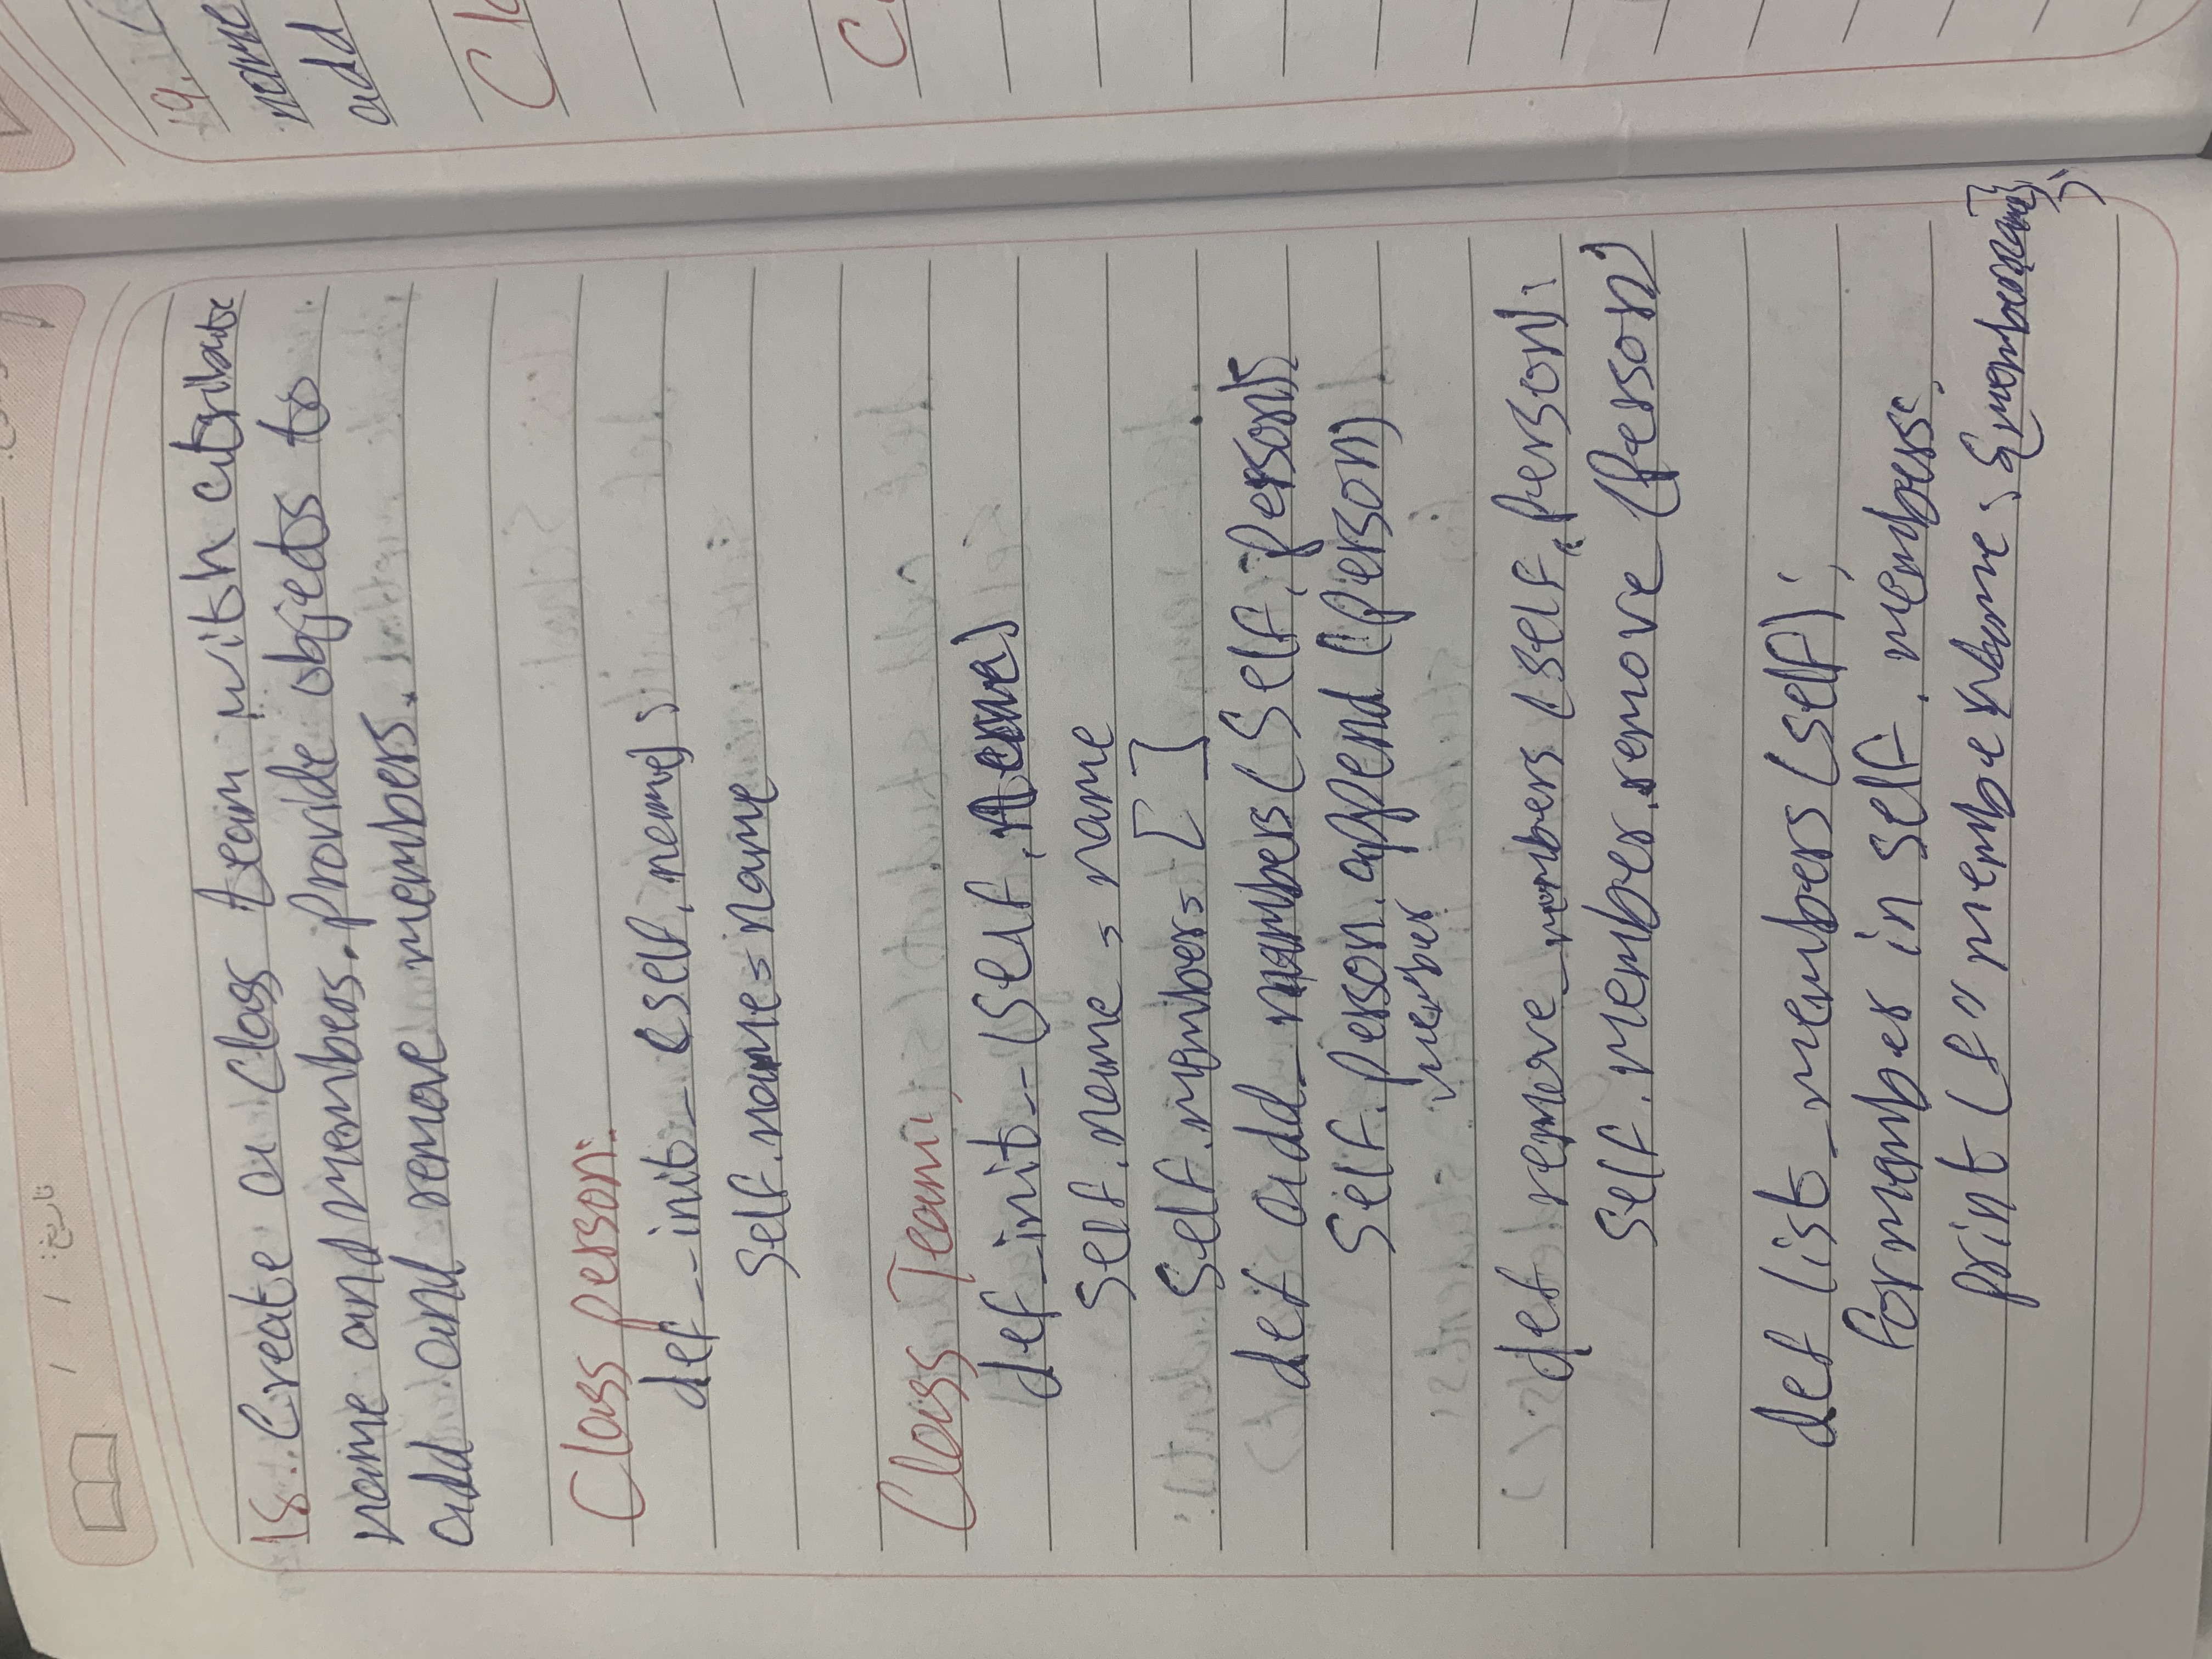 تاريخ: / /
18. Create a class team with atribute
name and members. Provide objects to
add and remove members.
Class person:
def __init_ (self, name):
self.name = name
Class Team:
def_init__(self, name)
self.name = name
self.members = [ ]
def add_members(self, person):
self.person.append (person)
member
def remove_members (self, person):
self.member.remove (person)
def list_members (self);
for member in self.members:
print (f" member Name: {member.name}
)
19.
name
add
Cl
C